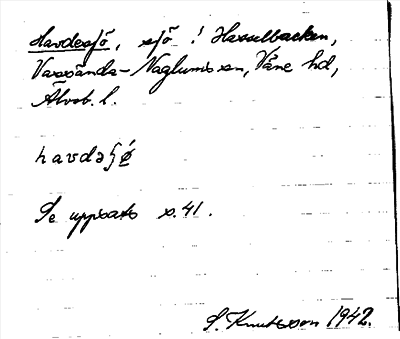 Havdesjö, sjö ! Hasselbacken,
Vassända-Naglums sn, Väne hd,
Älvsb. l.
havdəʃǿ
Se uppsats s. 41.
S. Knutsson 1942.